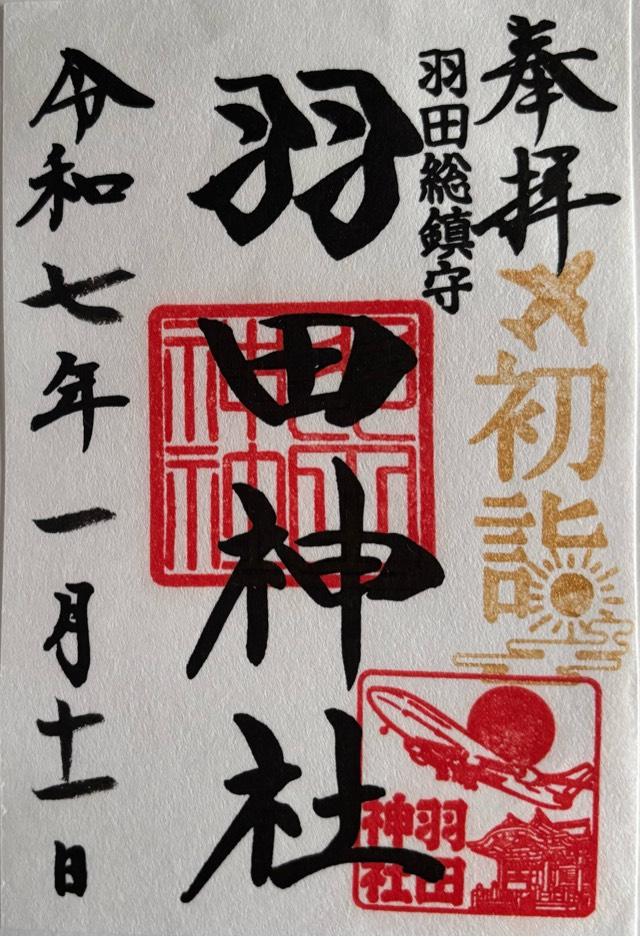 奉拝
初詣
羽田総鎮守
羽田神社
羽田
神社
令和七年一月十一日